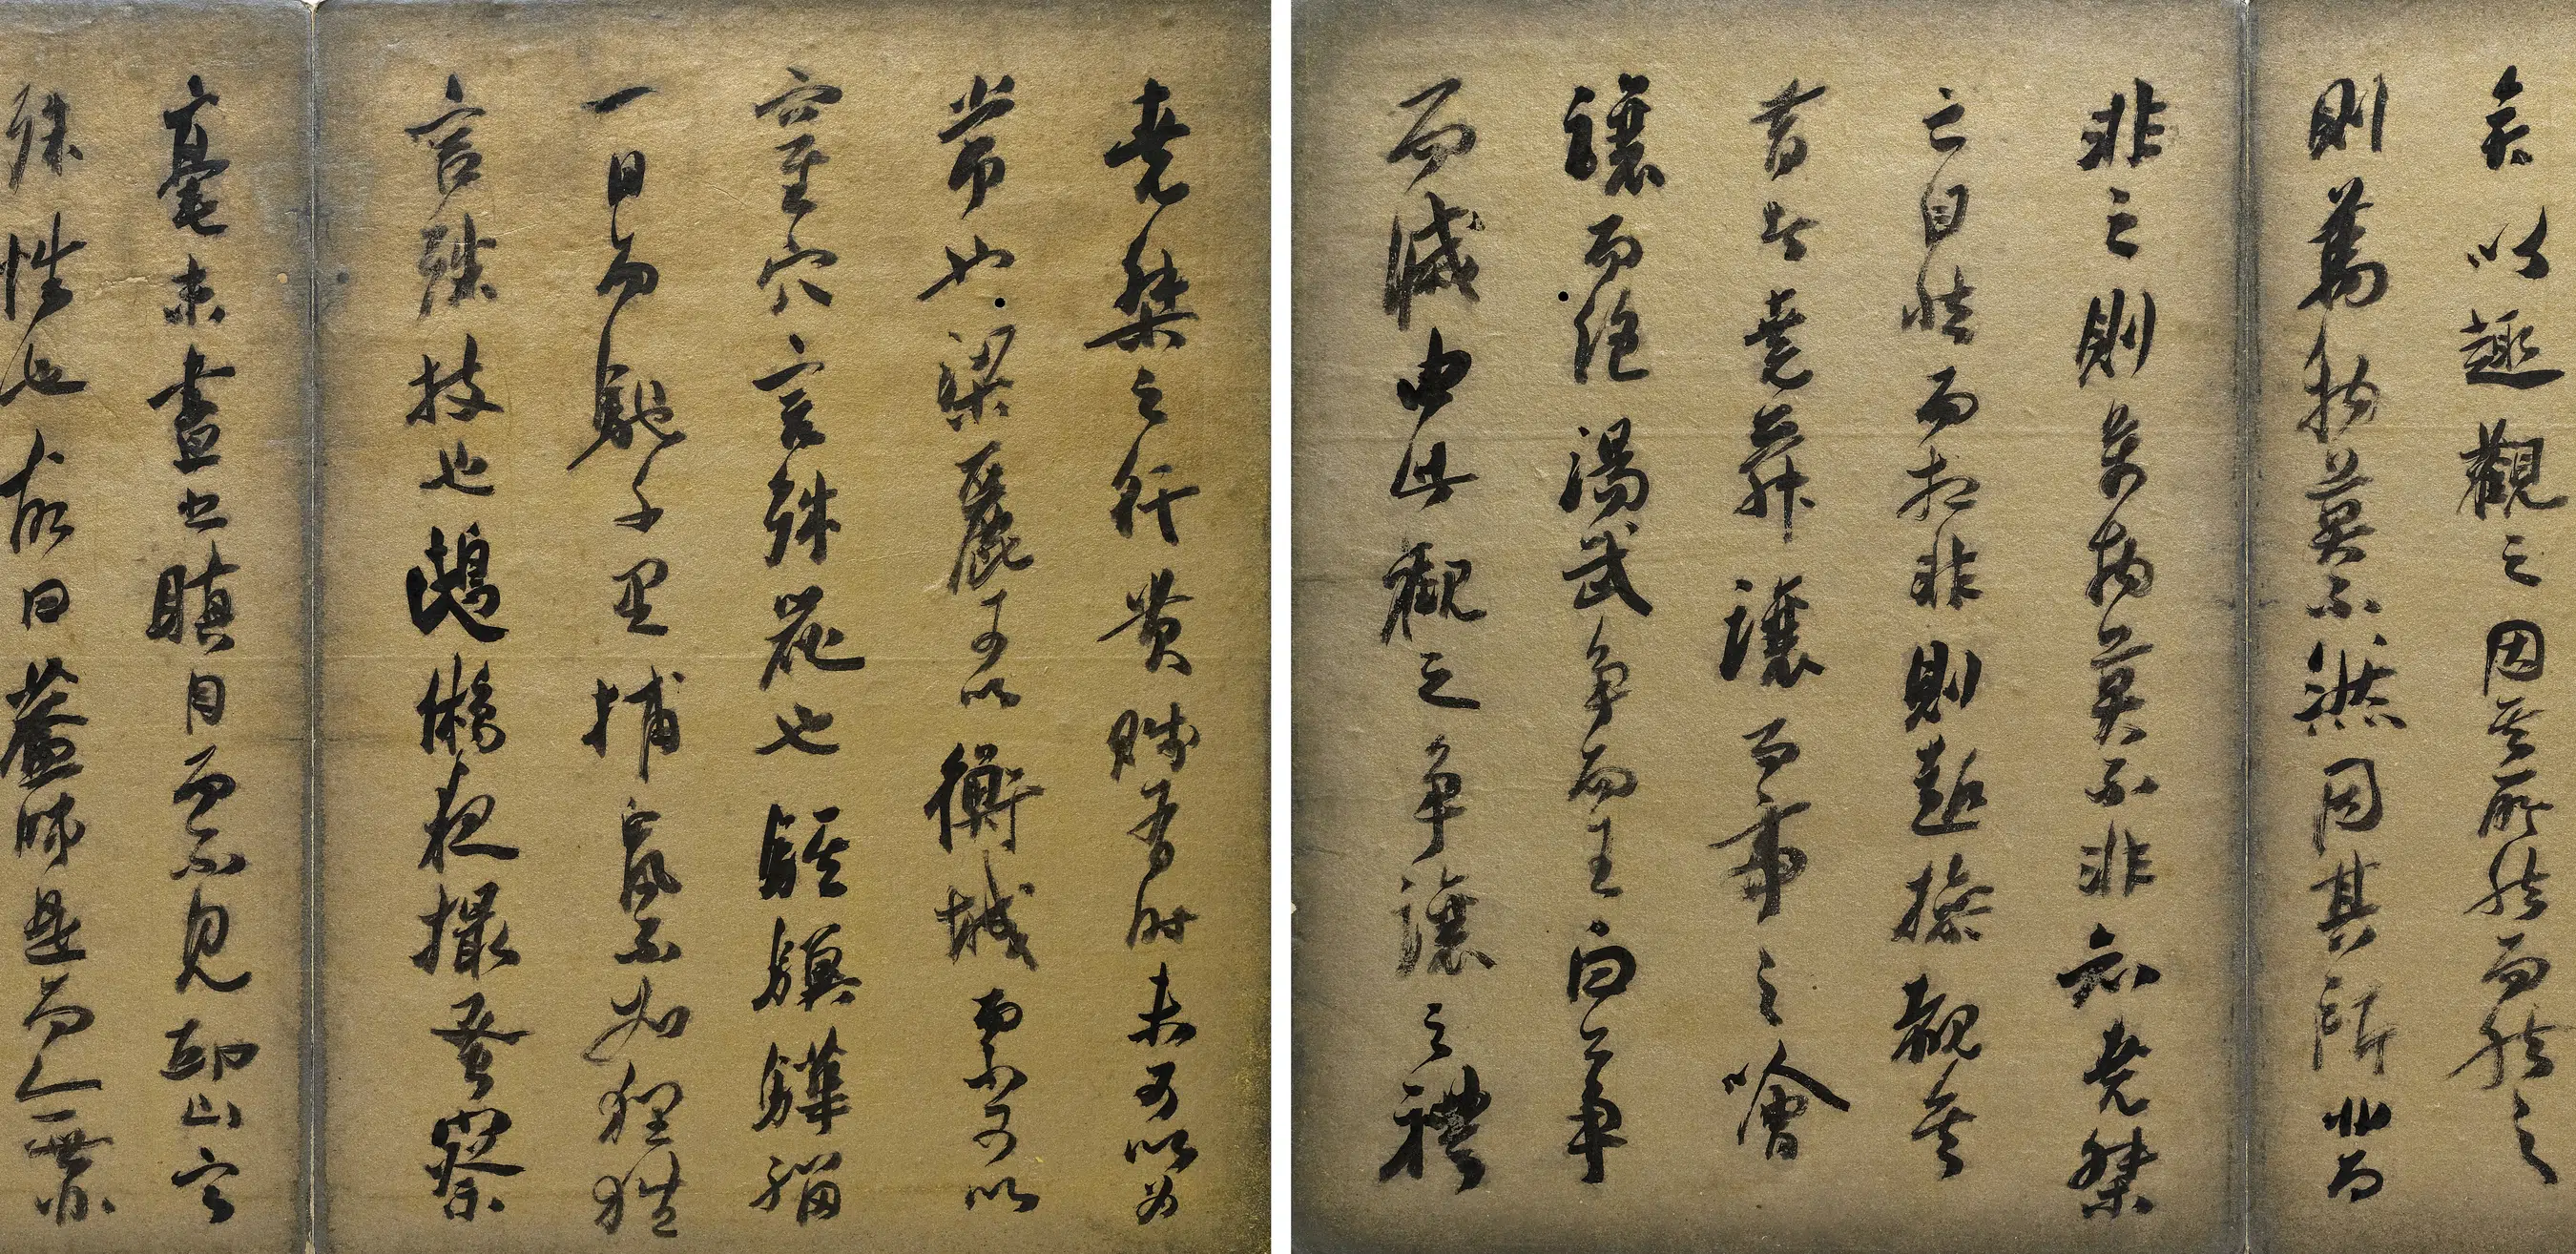 矣以趣觀之因其所然而然之
則萬物莫不然因其所非而
非之則萬物莫不非知堯桀
之自然而相非則趣操覩矣
昔者堯舜讓而帝之噲
讓而絕湯武爭而王白公爭
而滅由此觀之爭讓之禮
堯桀之行貴賤有時未可以為
常也梁麗可以衡城而不可以
窒穴言殊器也騏驥驊騮
一日而馳千里捕鼠不如狸狌
言殊技也鴟鵂夜撮蚤察
毫末晝出瞋目而不見邱山言
殊性也故曰蓋師是而無